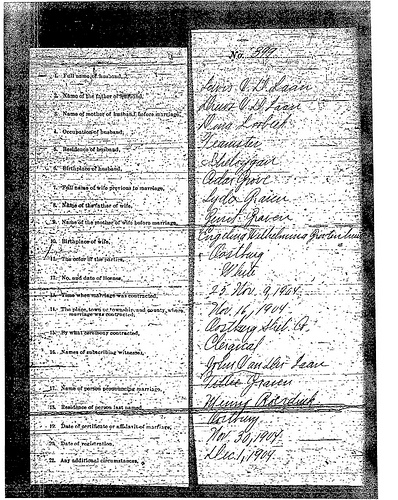 No. 599
1. Full name of husband,
2. Name of the father of husband,
3. Name of mother of husband before marriage,
4. Occupation of husband,
5. Residence of husband,
6. Birthplace of husband,
7. Full name of wife previous to marriage,
8. Name of the father of wife,
9. Name of the mother of wife before marriage,
10. Birthplace of wife,
11. The color of the parties,
12. No. and date of license,
13. Time when marriage was contracted,
14. The place, town or township, and county, where
marriage was contracted,
15. By what ceremony contracted,
16. Names of subscribing witnesses,
17. Name of person pronouncing marriage,
18. Residence of person last named,
19. Date of certificate or affidavit of marriage,
20. Date of registration,
21. Any additional circumstances,
Dina
Teamster
Sheboygan
Cedar Grove
Graven
Oostburg
White
25. Nov. 9, 1904
Nov. 16, 1904
Oostburg Sheb. Co.
Clergical
John Van der Laan
Graven
Oostburg
Nov. 30, 1904
Dec. 1, 1904